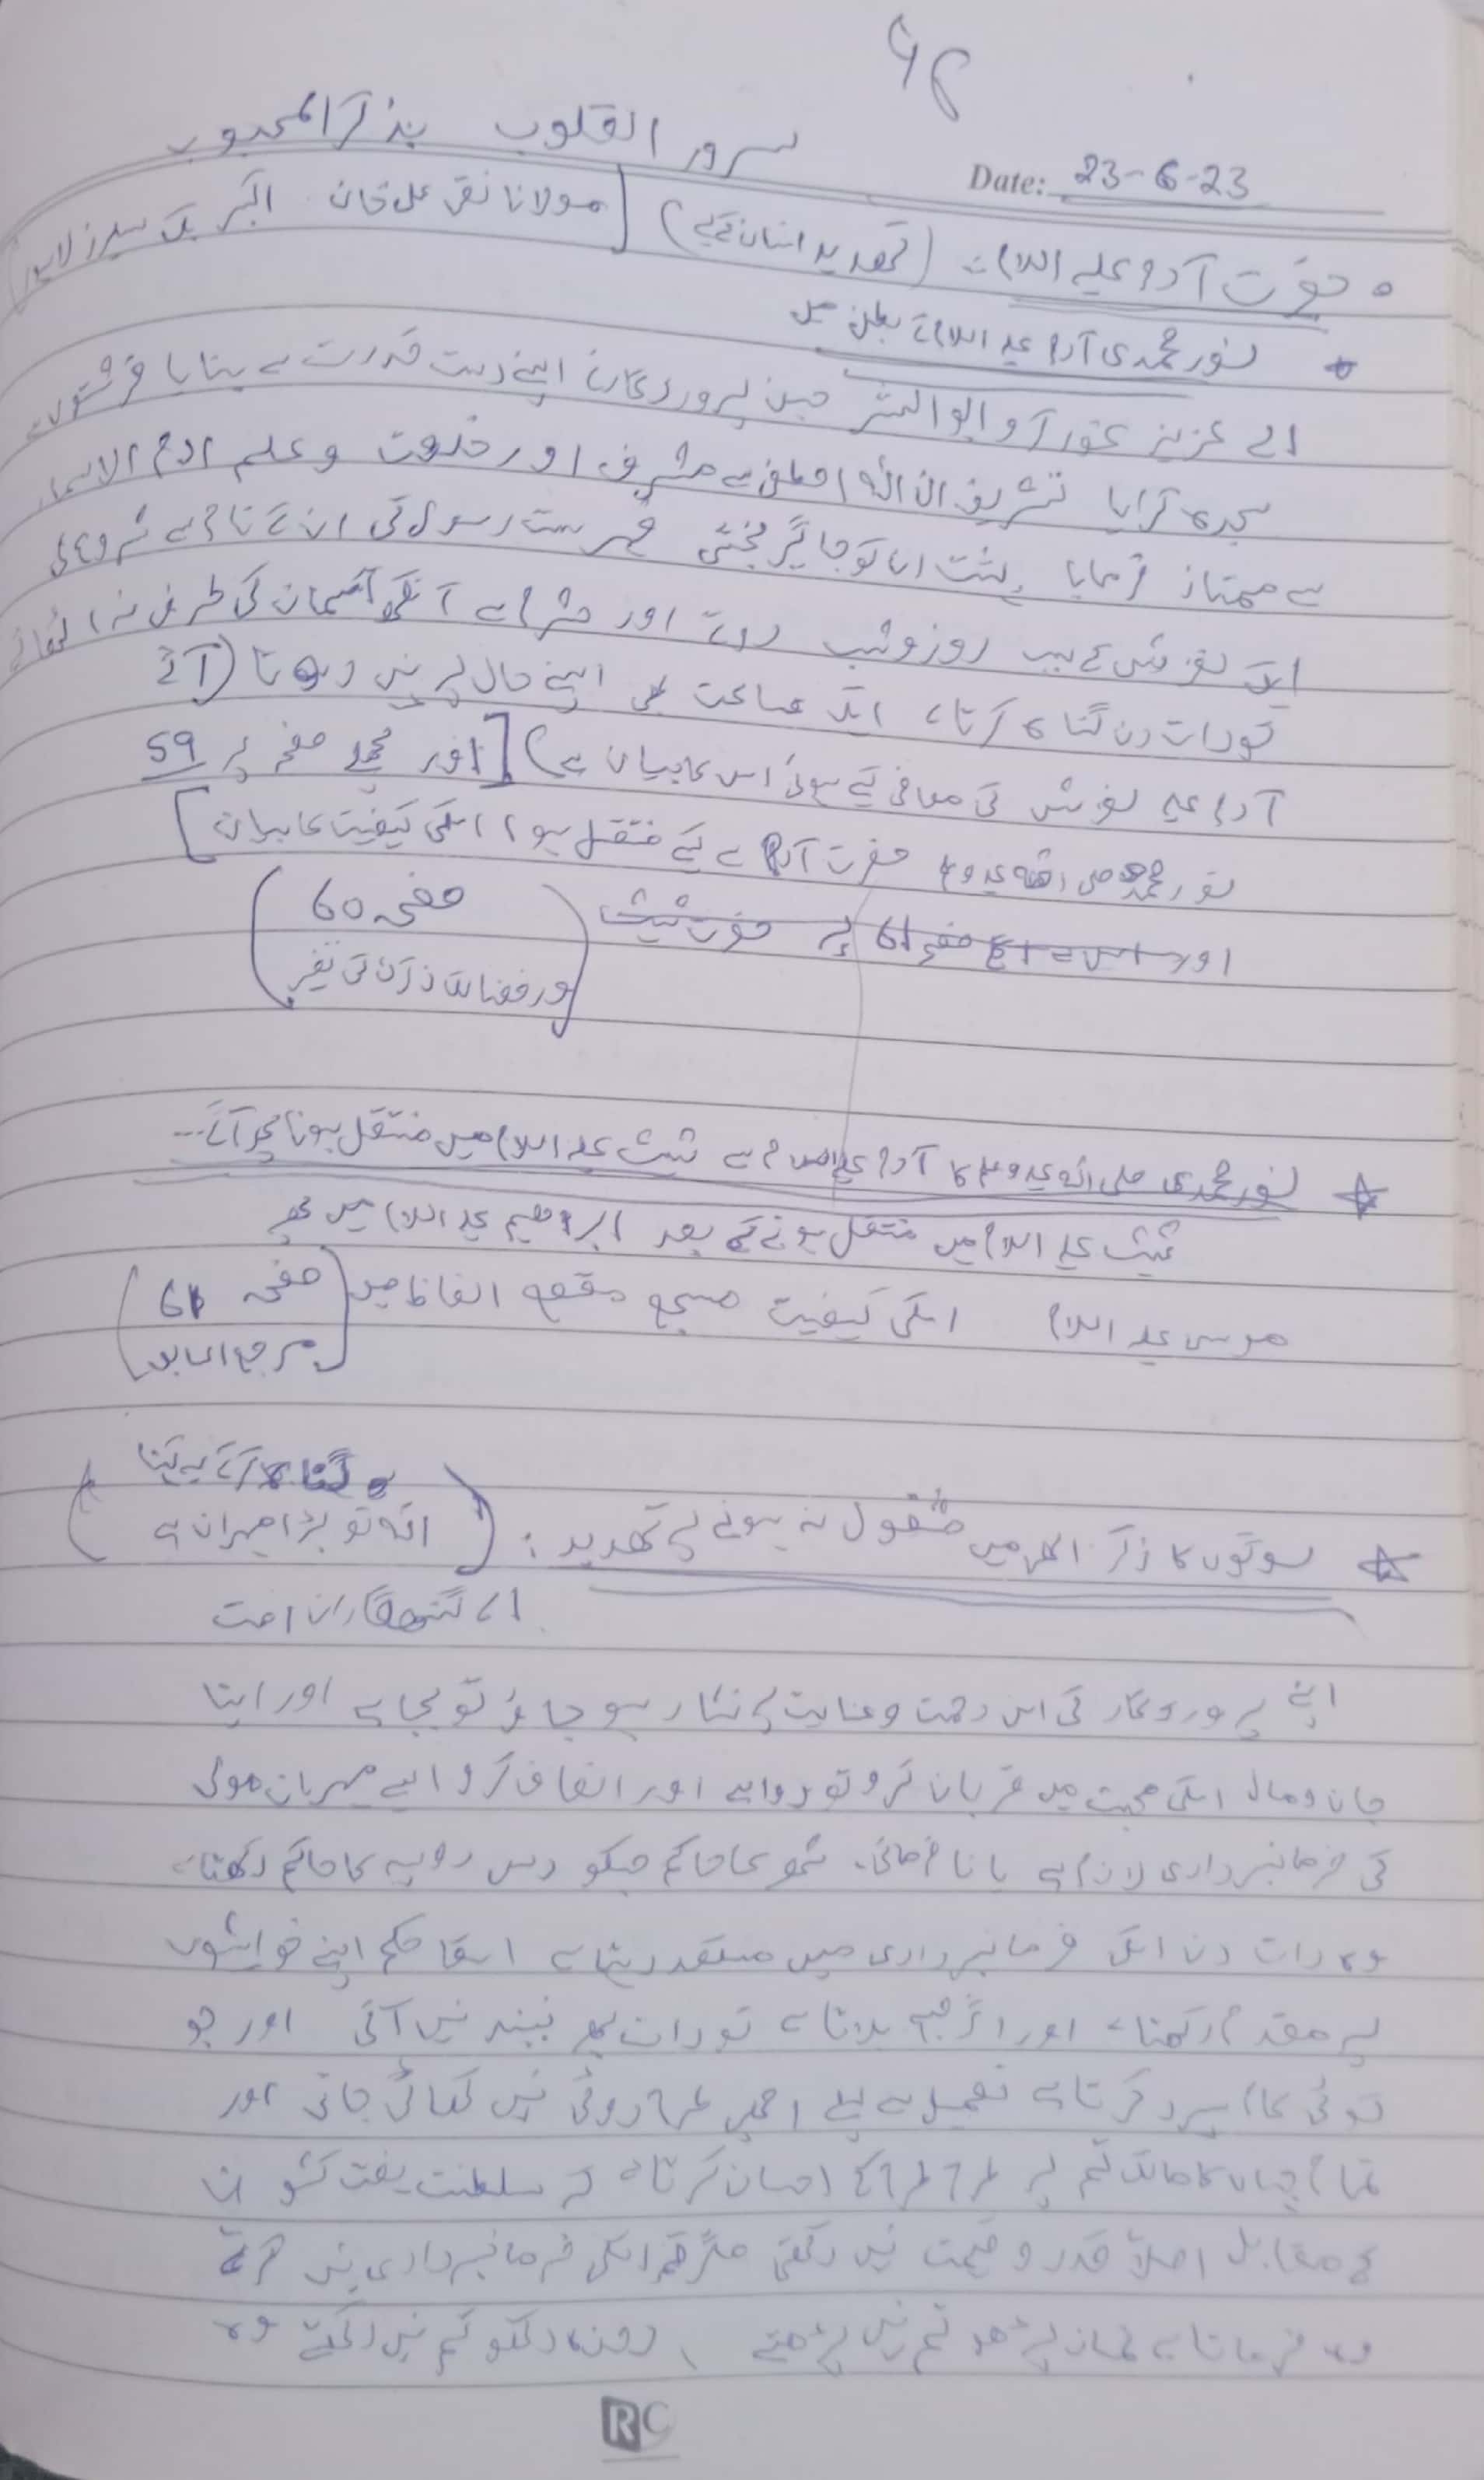 ۶۴
سرور القلوب بذکر المحبوب
Date: 23-6-23
حضرت آدم علیہ السلام :- (تہدید انسان کیلیے) [مولانا نقی علی خان اکبر بک سیلرز لاہور]
نور محمدی آدم علیہ السلام کے بطن میں
اے عزیز غور کرو ابو البشر جس پروردگار نے اپنے دست قدرت سے بنایا فرشتوں سے
سجدہ کرایا تشریف ان اللہ اصطفی سے مشرف اور خلعت و علم ادم الاسماء
سے ممتاز فرمایا ہشت انکو جاگیر بخشی فہرست رسول کی ان کے نام سے شروع کی
ایک لغزش کے سبب روز و شب روتے اور شرم سے آنکھ آسمان کی طرف نہ اٹھاتے
تو رات دن گناہ کرتا ہے ایک ساعت بھی اپنے حال پر نہیں روتا (آگے
آدم علیہ لغزش کی معافی کیسے ہوئی اس کا بیان ہے) [اور صفحہ پر 59
نور محمد صلی اللہ علیہ وسلم حضرت آدم سے کیسے منتقل ہوا اسکی کیفیت کا بیان]
اور صفحہ 61 پر حضرت شیث (صفحہ 60
ورفعنا لک ذکرک کی تفسیر)
نور محمدی صلی اللہ علیہ وسلم کا آدم علیہ السلام سے شیث علیہ السلام میں منتقل ہونا پھر آگے...
شیث علیہ السلام میں منتقل ہونے کے بعد ابراھیم علیہ السلام میں پھر
موسی علیہ السلام اسکی کیفیت مسجع مقفع الفاظ میں (صفحہ 61
مرجع السابق)
لوگوں کا ذکر الھی میں مشغول نہ ہونے پر تہدید : (گناہ کر کے یہ کہنا
اللہ تو بڑا مہربان ہے)
اے گنہگاران امت
اپنے پروردگار کی اس رحمت و عنایت پر نثار ہو جاؤ تو بجا ہے اور اپنا
جان و مال اسکی محبت میں قربان کرو تو روا ہے اور انصاف کرو ایسے مہربان مولی
کی فرمانبرداری لازم ہے یا نافرمانی۔ حاکم جسکو دس روپیہ کا حاکم رکھتا ہے
وہ رات دن اسکی فرمانبرداری میں مستعد رہتا ہے اسکا حکم اپنے خواہشوں
پر مقدم رکھتا ہے اور اگر صبح بلاتا ہے تو رات بھر نیند نہیں آتی اور جو
کوئی کام سپرد کرتا ہے تعمیل سے پہلے اچھی طرح روٹی نہیں کھائی جاتی اور
تمام جہاں کا مالک تم پر طرح طرح کے احسان کرتا ہے کہ سلطنت ہفت کشور ان
کے مقابل اصلاً قدر و قیمت نہیں رکھتی مگر تم اسکی فرمانبرداری نہیں کرتے
وہ فرماتا ہے نماز پڑھو تم نہیں پڑھتے، روزہ رکھو تم نہیں رکھتے وہ
RC